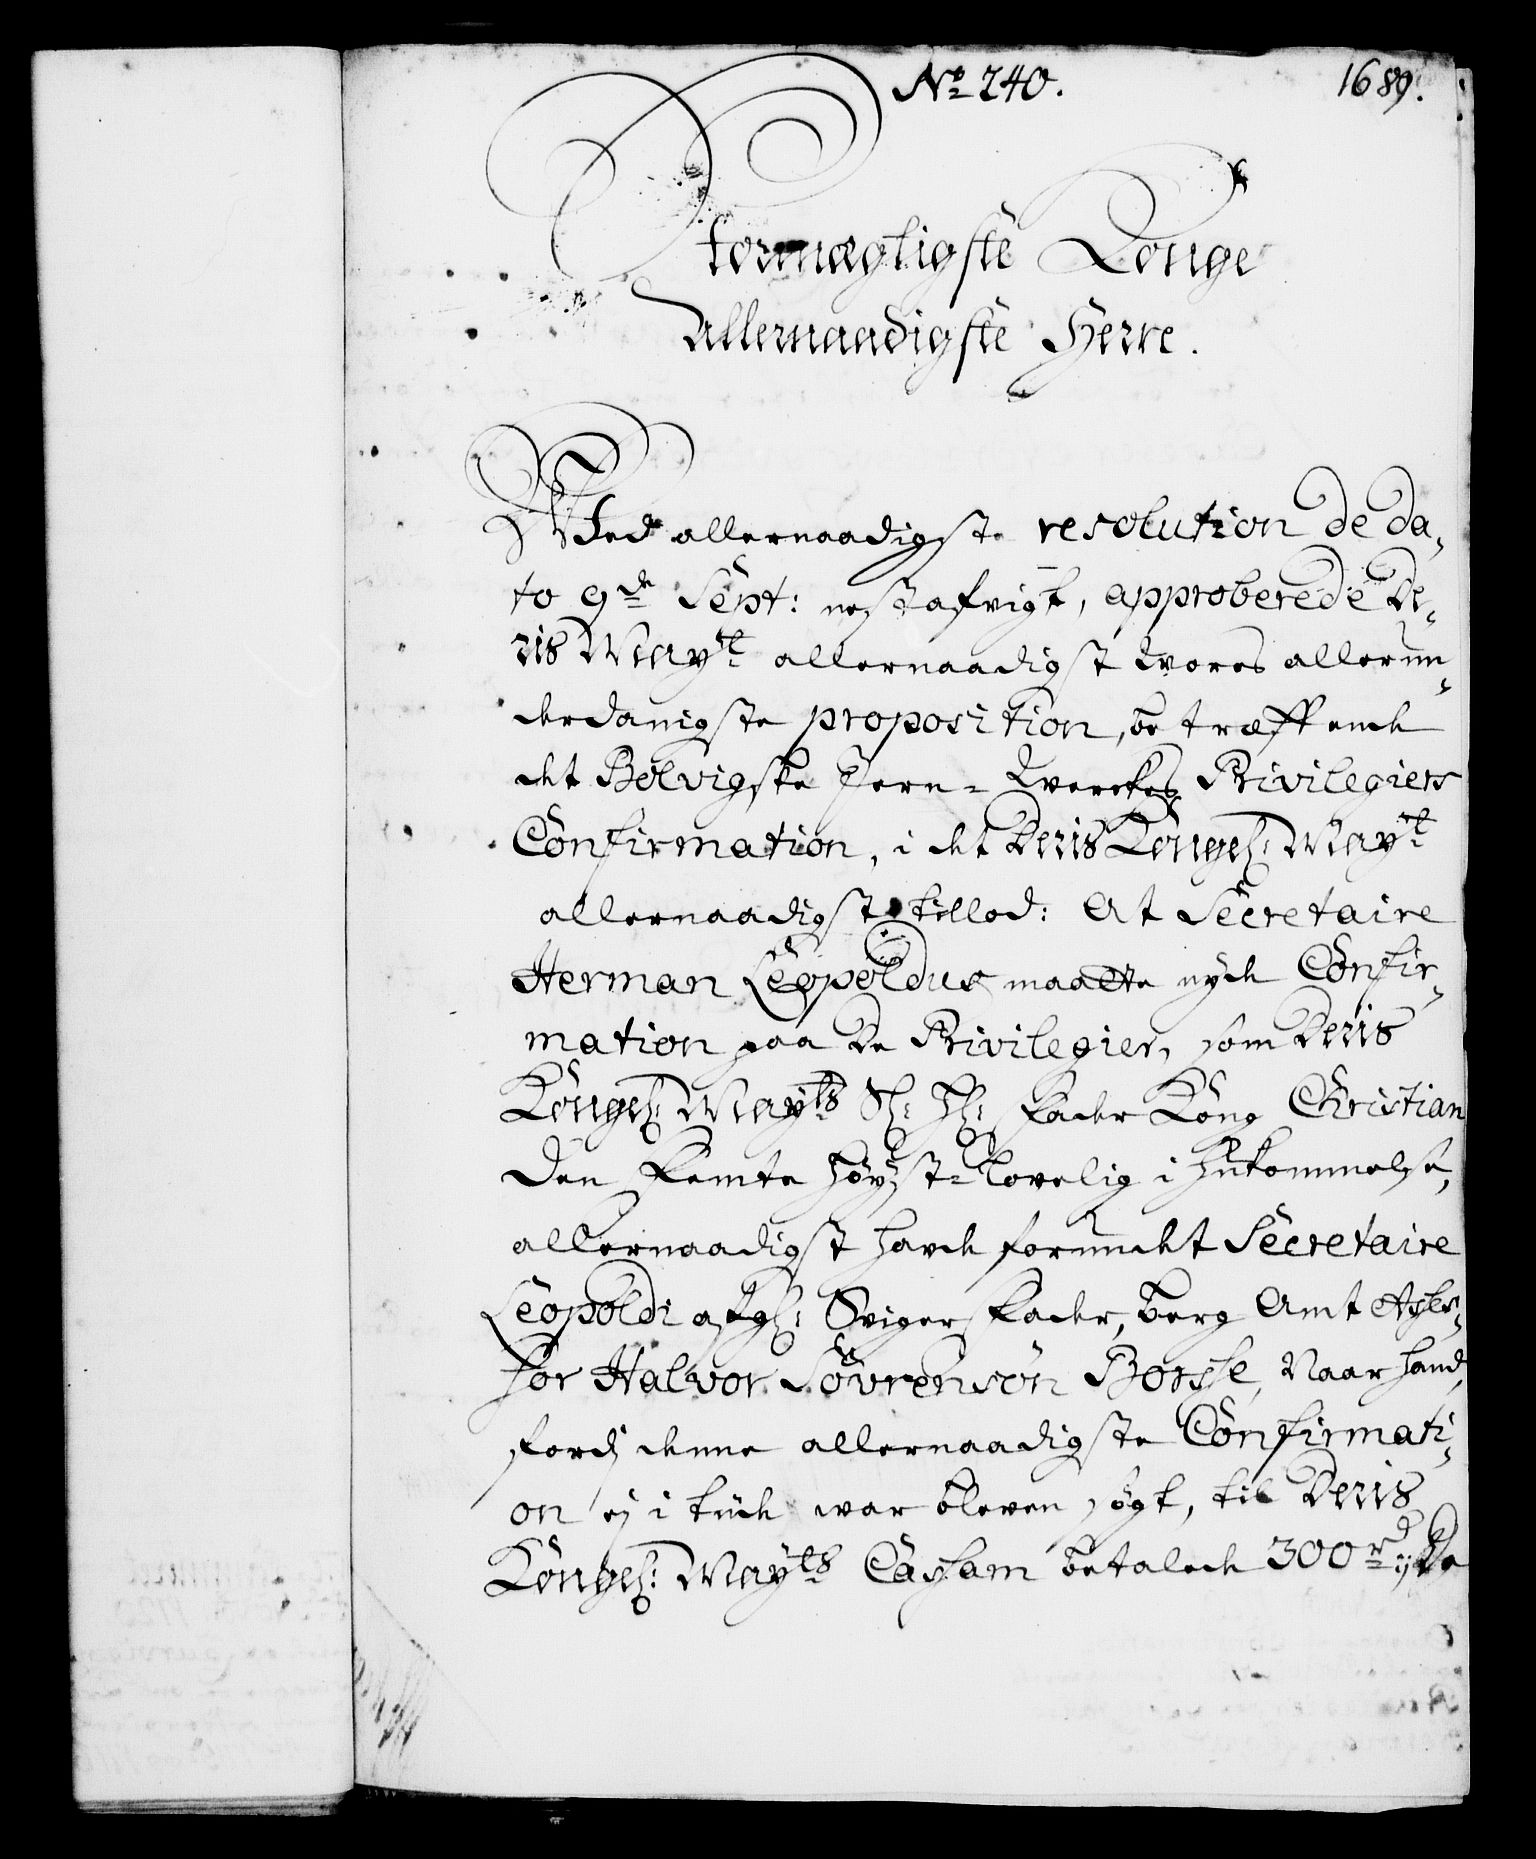 No 240. 1689.
Stormægtigste Konge
Allernaadigste Herre.
Wed allernaadigste resolution de da-
to 9de Sept: nestafvigt, approberede De-
ris Mayt allernaadigst wores allerun-
derdanigste proposition, betræffende
det Bolvigske Jern-Werckes Privilegiers
Confirmation, i det Deris Kongel: Mayt
allernaadigst tillod: At Secretaire
Herman Leopoldus maatte nyde Confir-
mation paa de Privilegier, som Deris
Kongel: Mayts Sl: Hr: Fader Kong Christian
den Femte høyst-lovelig i Hukommelse,
allernaadigst hafde forundt Secretaire
Leopoldi afgl: Svigerfader, berg Amt Asses-
sor Halvor Søvrensøn Borsse, Naar hand,
fordj denne allernaadigste Confirmati-
on ej i tiide war bleven søgt, til Deris
Kongel: Mayts Cassam betalede 300 rd: De